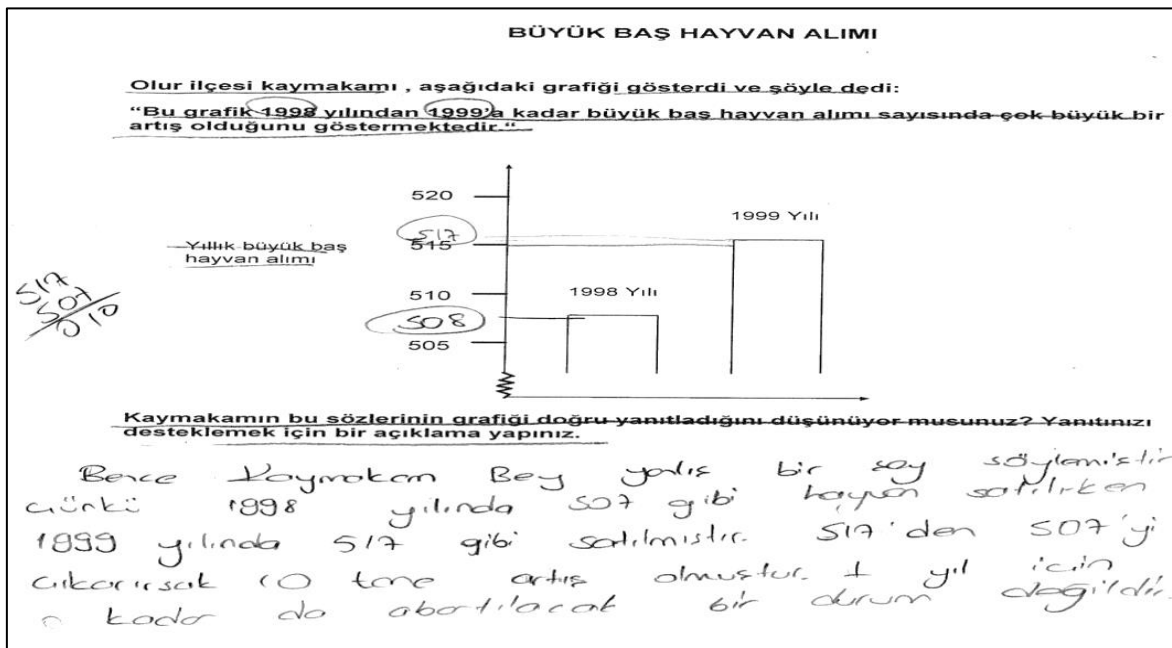 BÜYÜK BAŞ HAYVAN ALIMI
Olur ilçesi kaymakamı , aşağıdaki grafiği gösterdi ve şöyle dedi:
“Bu grafik 1998 yılından 1999’a kadar büyük baş hayvan alımı sayısında çok büyük bir
artış olduğunu göstermektedir.“
520
1999 Yılı
517
515
Yıllık büyük baş
hayvan alımı
517
507
010
510
1998 Yılı
508
505
Kaymakamın bu sözlerinin grafiği doğru yanıtladığını düşünüyor musunuz? Yanıtınızı
desteklemek için bir açıklama yapınız.
Bence Kaymakam Bey yanlış bir şey söylemiştir
çünkü 1998 yılında 507 gibi hayvan satılırken
1999 yılında 517 gibi satılmıştır. 517'den 507'yi
çıkarırsak 10 tane artış olmuştur. 1 yıl için
o kadar da abartılacak bir durum değildir.